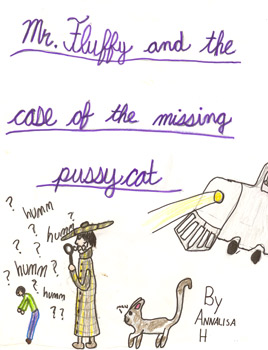 Mr. Fluffy and the
case of the missing
pussy cat
?
humm
?
humm
?
?
?
humm
?
?
humm
??
mew
By
ANNALISA
H